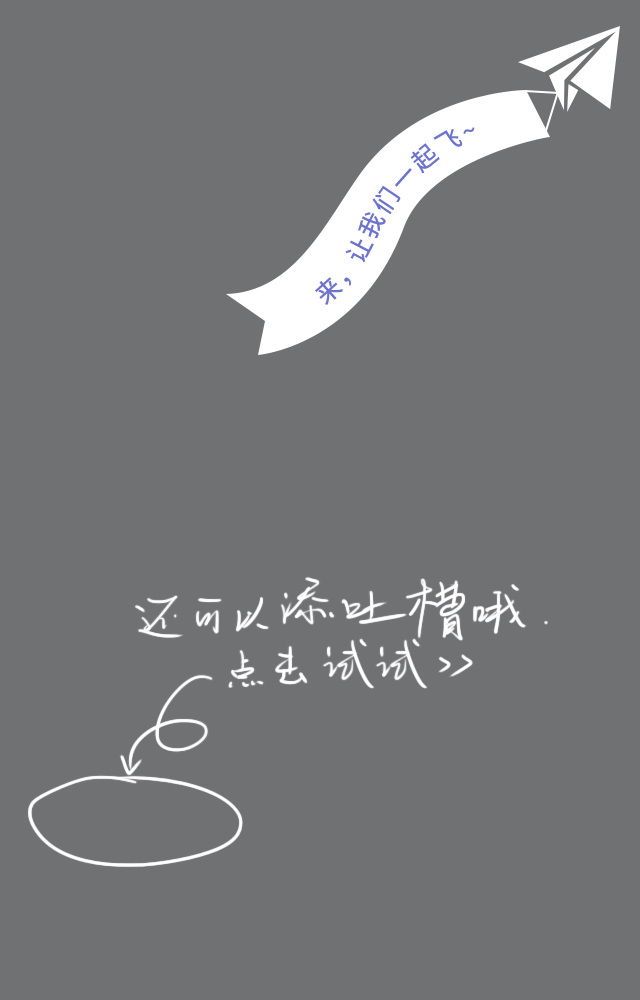 来，让我们一起飞~
还可以添吐槽哦.
点击试试>>